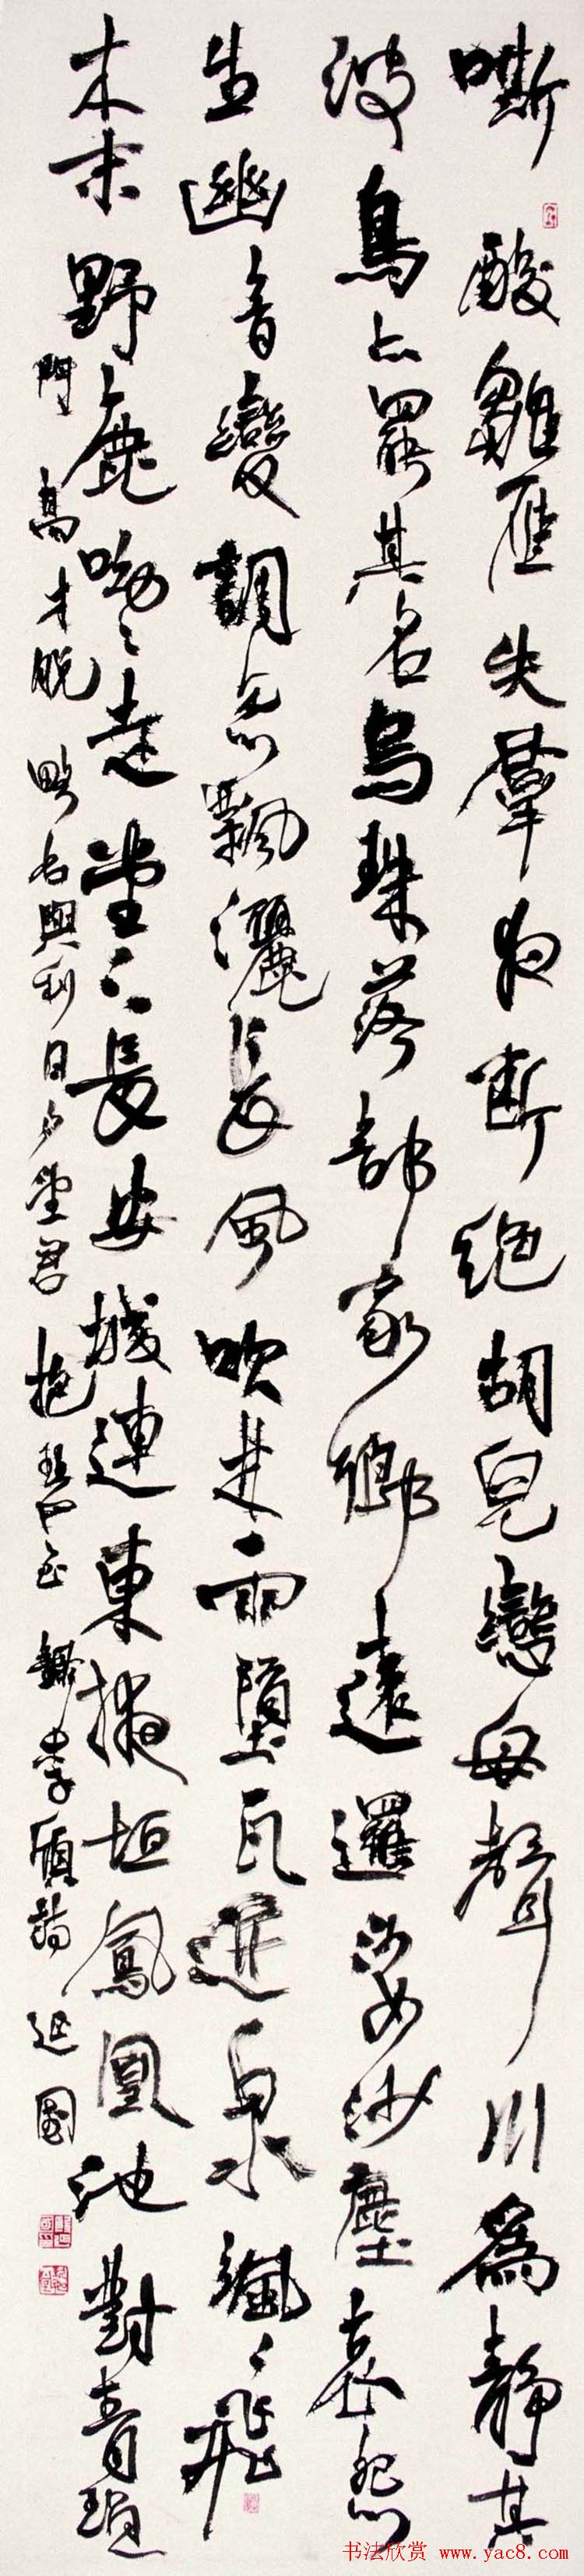 嘶酸雛雁失羣夜斷絕胡兒戀母聲川為靜其
波鳥亦罷其名烏珠落部家鄉遠邏娑沙塵哀怨
生幽音變調忽飄灑長風吹林雨墮瓦迸泉颯々飛
木末野鹿呦々走堂下長安城連東掖垣鳳凰池對青瑣
門高才脫略名與利日夕望君抱琴至 錄李頎詩
书法欣赏 www.yac8.com